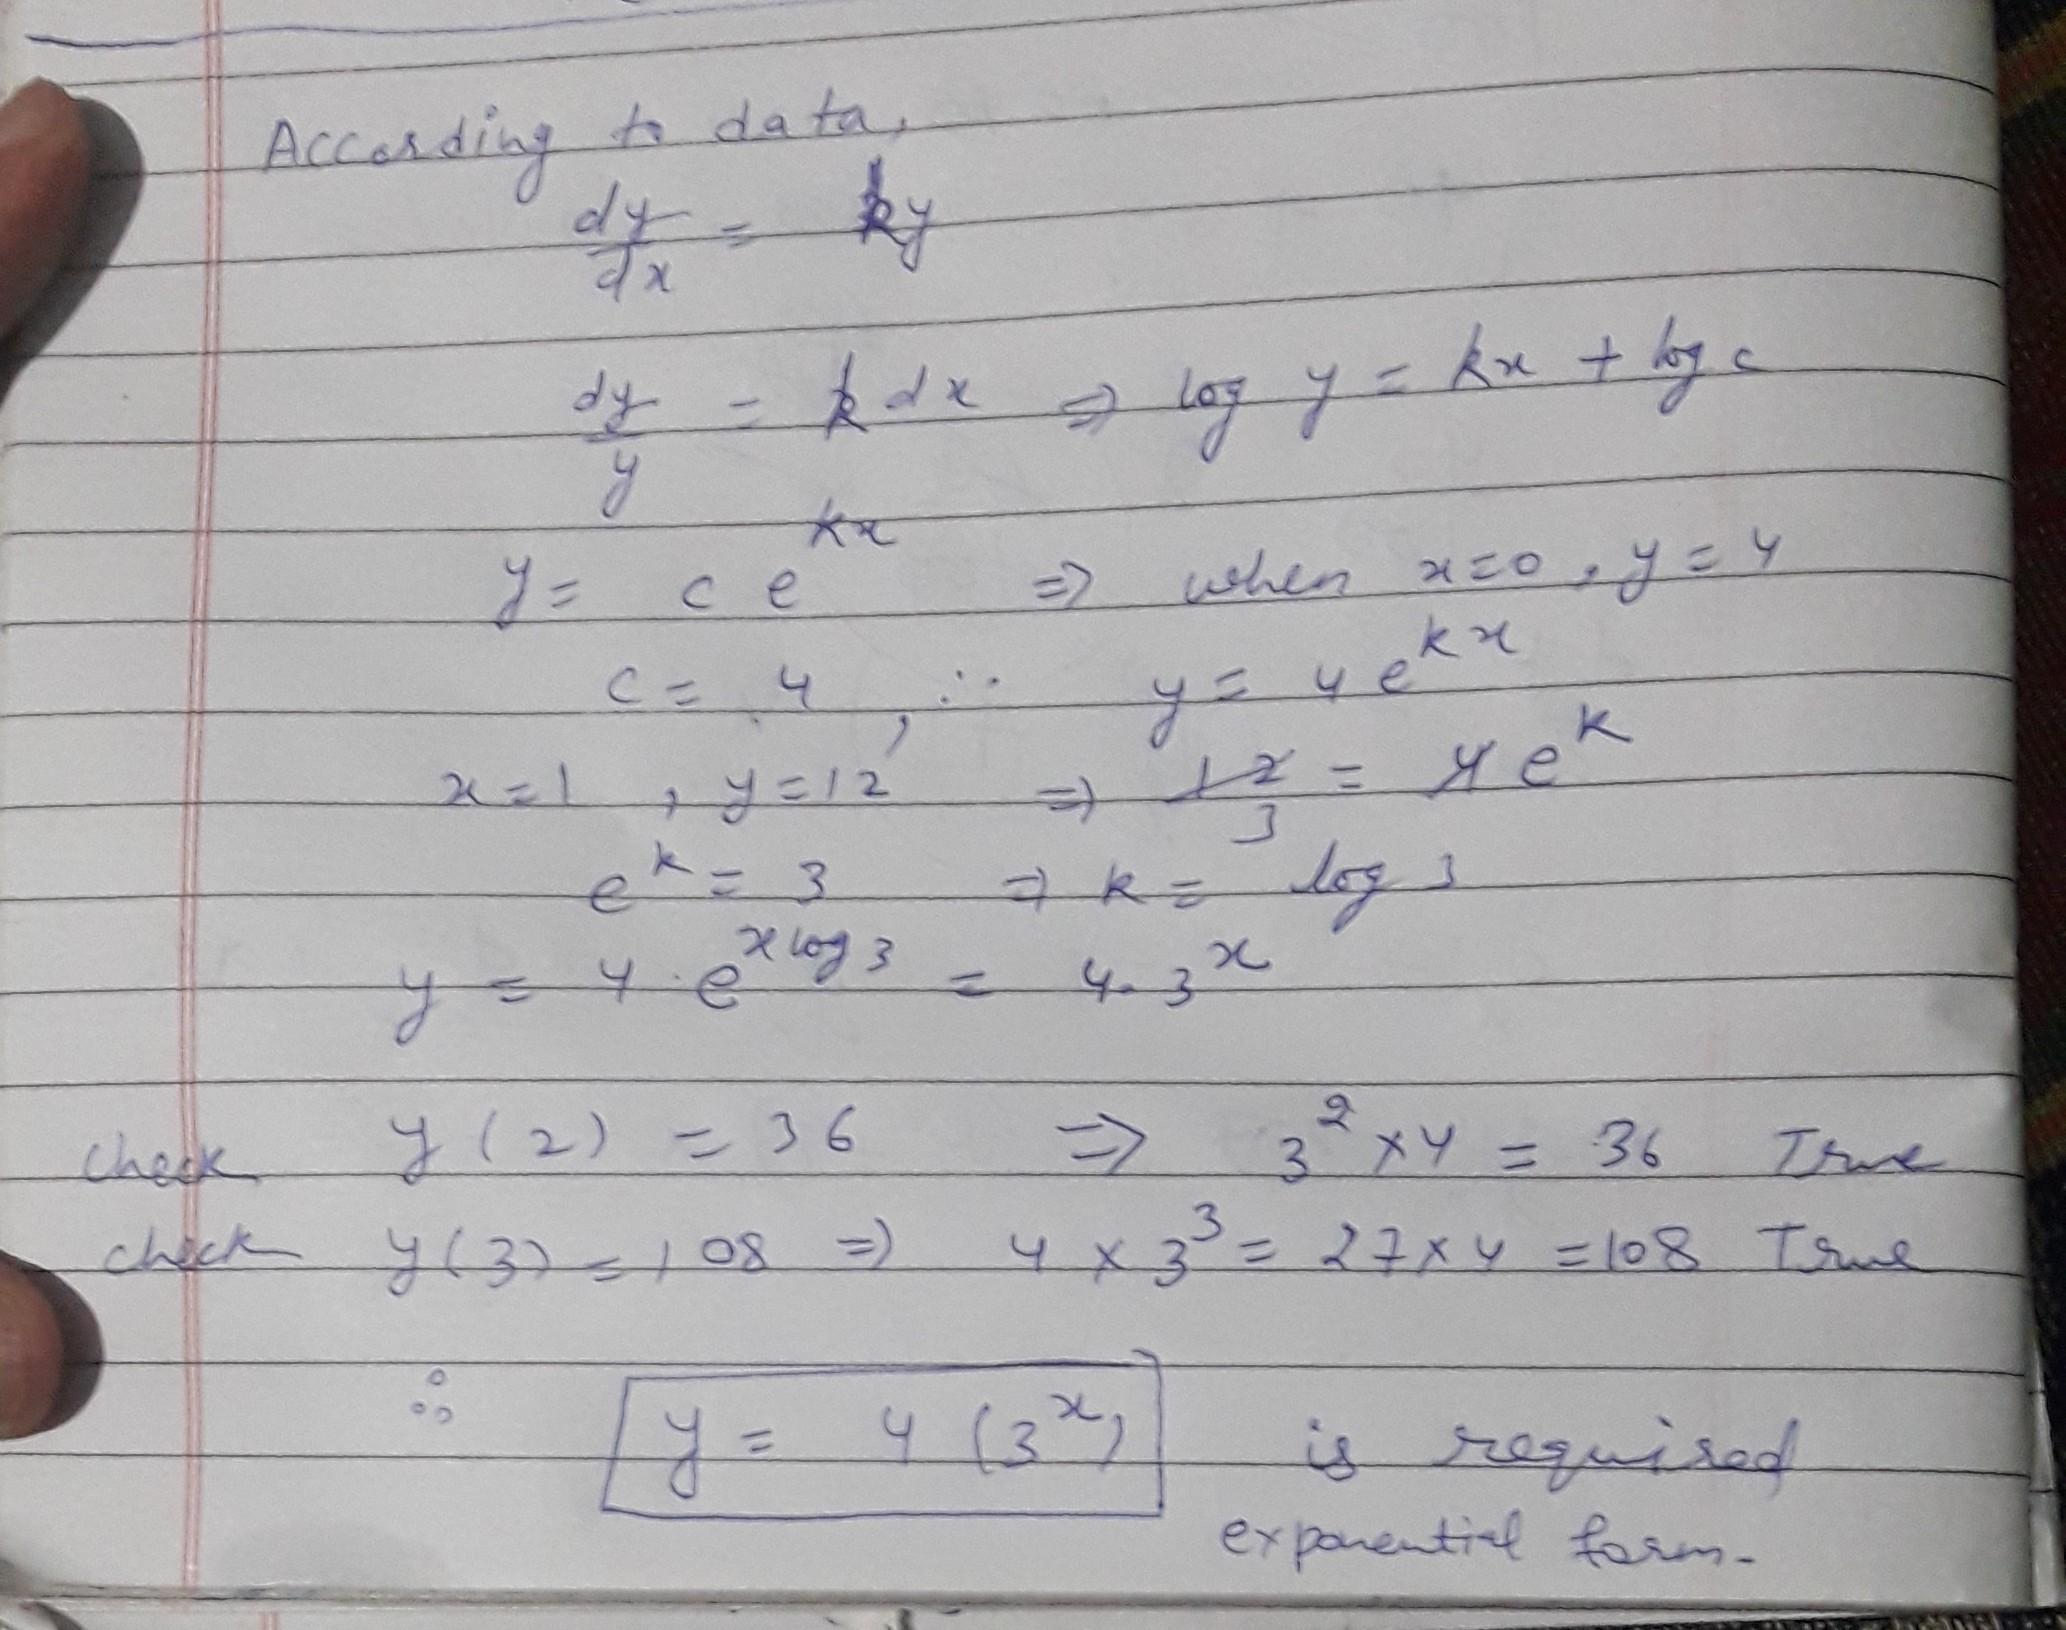 According to data,
dy/dx = ky
dy/y = k dx ⇒ log y = kx + log c
y = c e^kx ⇒ when x=0, y=4
c = 4, ∴ y = 4 e^kx
x=1, y=12 ⇒ 12 = 4 e^k
3
e^k = 3 ⇒ k = log 3
y = 4 · e^x log 3 = 4 · 3^x
check y(2) = 36 ⇒ 3^2 × 4 = 36 True
check y(3) = 108 ⇒ 4 × 3^3 = 27 × 4 = 108 True
∴ y = 4 (3^x) is required
exponential form.